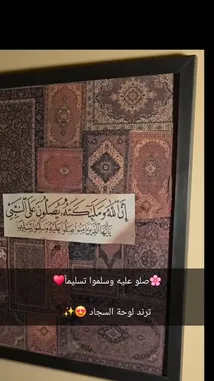 إن الله وملئكته يصلون على النبي
يأيها الذين ءامنوا صلوا عليه وسلموا تسليما
🌸صلو عليه وسلموا تسليماً❤️
ترند لوحة السجاد 😍✨